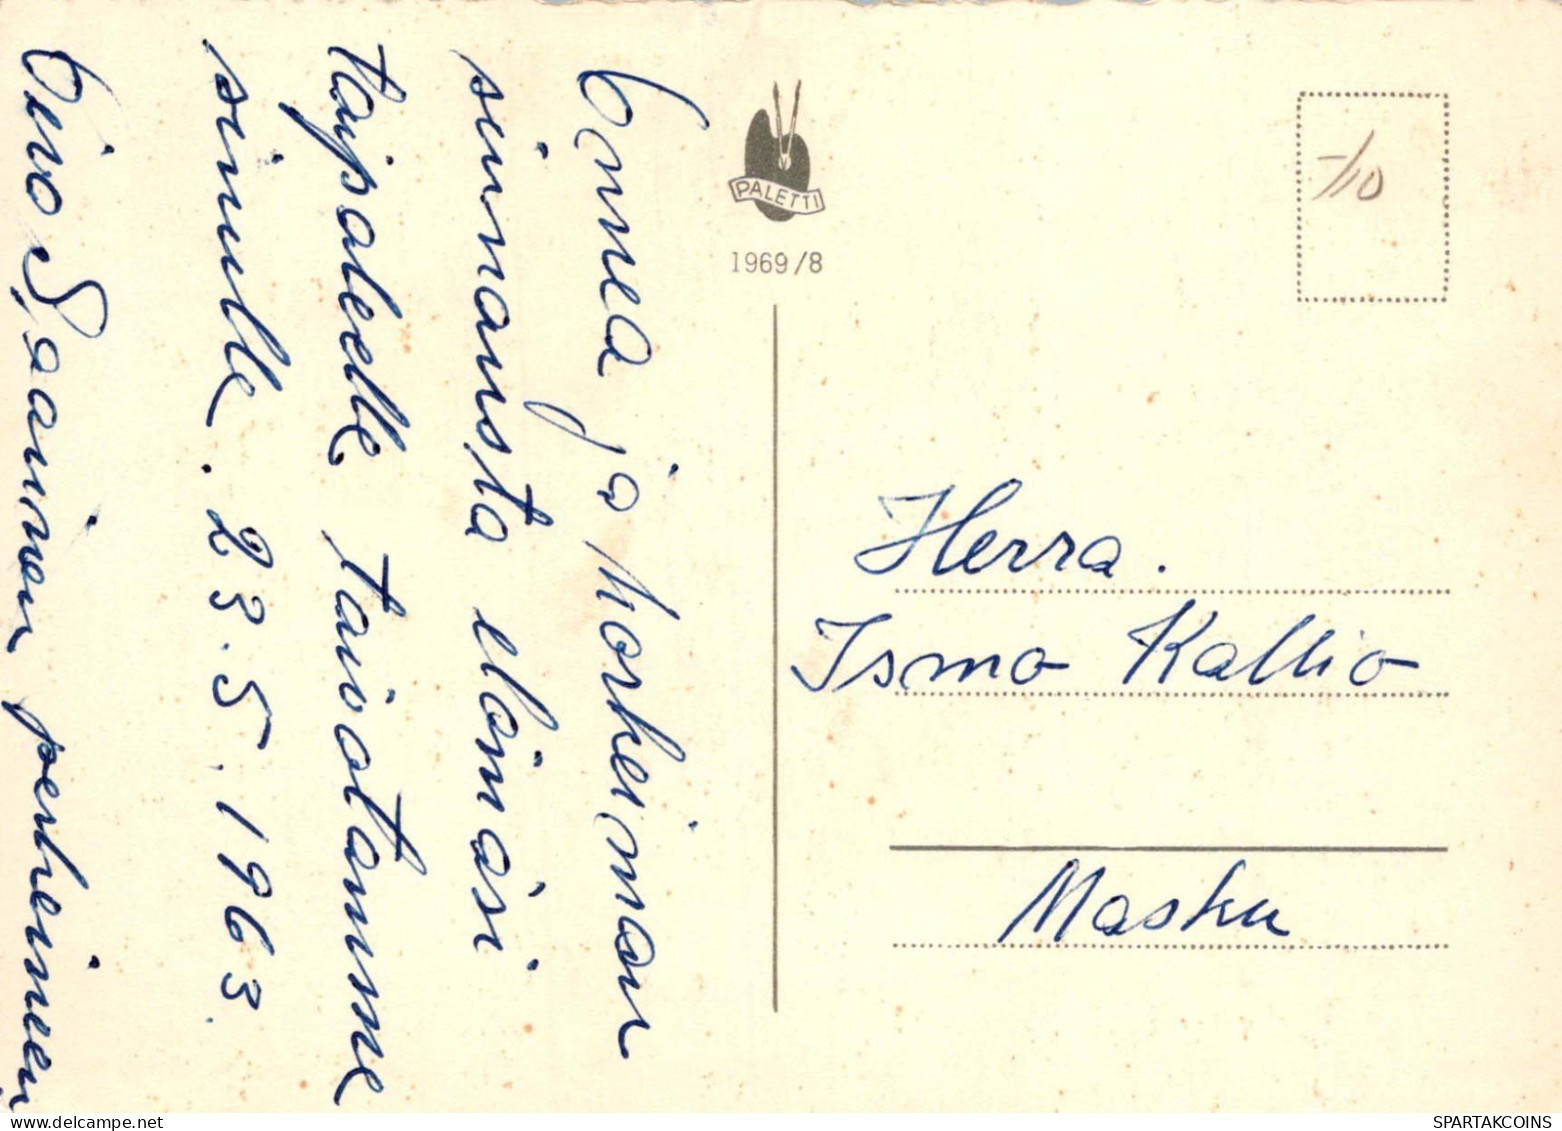 Onnea ja Korkeiman
siunausta elämäsi
taipaleelle toivotamme
sinulle. 23.5.1963.
Oiva Saarinen perheineen
PALETTI
1969/8
-/10
Herra.
Ismo Kallio
Masku
SPARTAKCOINS
www.delcampe.net